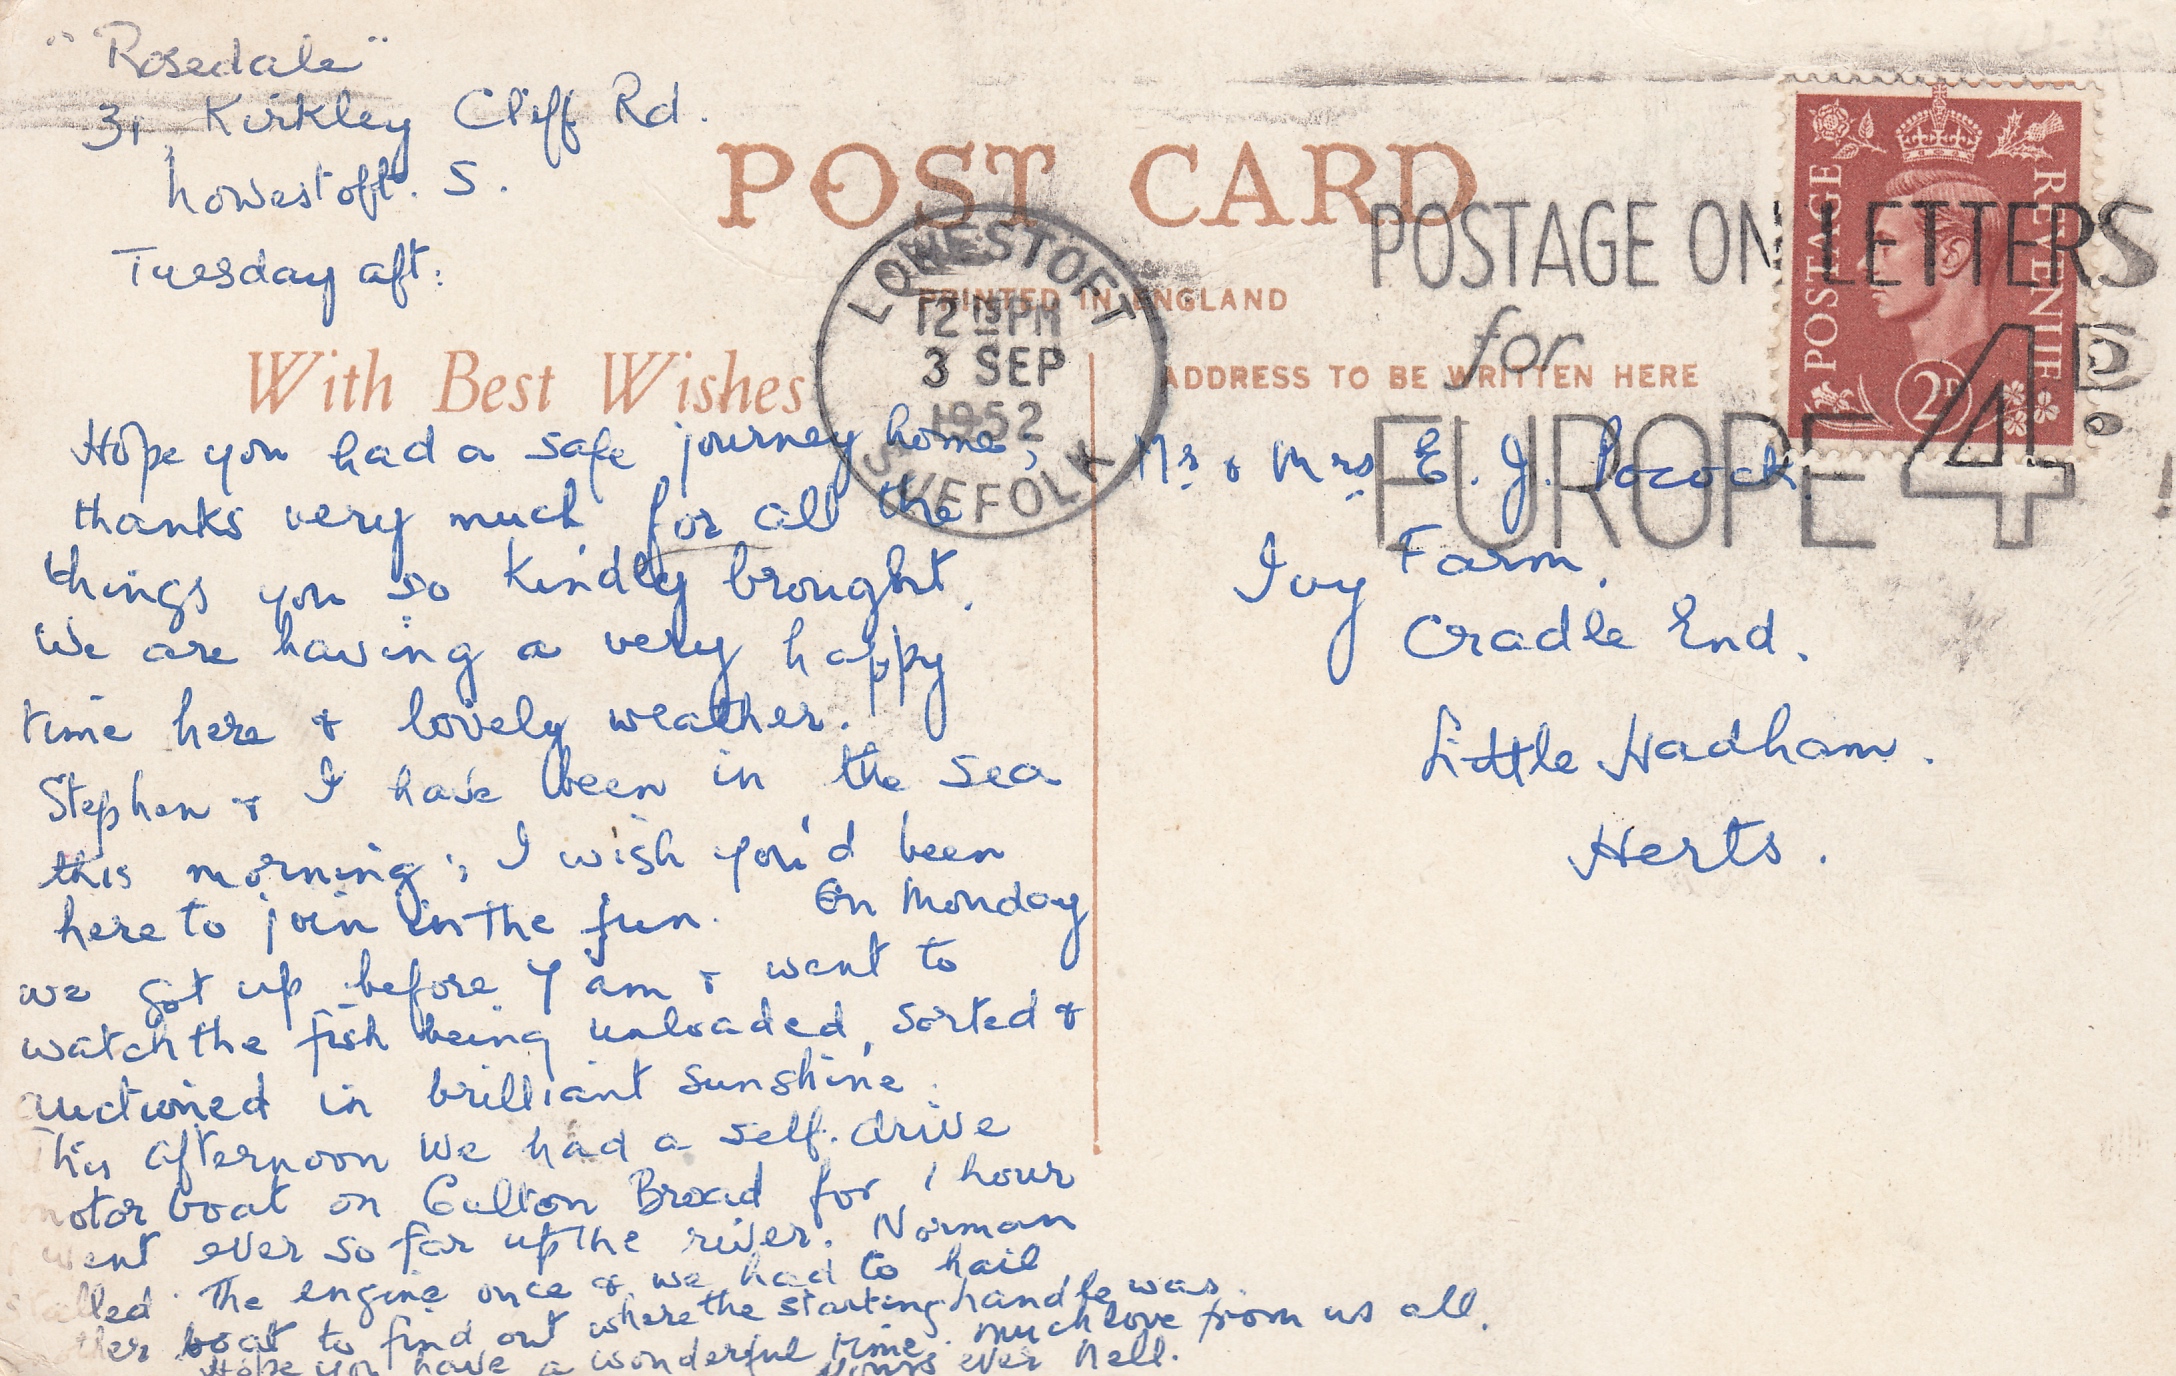 "Rosedale"
31, Kirkley Cliff Rd.
Lowestoft. S.
Tuesday aft:
POST CARD
PRINTED IN ENGLAND
With Best Wishes
ADDRESS TO BE WRITTEN HERE
LOWESTOFT
12 15 PM
3 SEP
1952
SUFFOLK
POSTAGE ON LETTERS
for
EUROPE 4D.!
POSTAGE
REVENUE
2D
Hope you had a safe journey home,
thanks very much for all the
things you so kindly brought.
We are having a very happy
time here & lovely weather.
Stephen & I have been in the sea
this morning; I wish you'd been
here to join in the fun. On Monday
we got up before 7 am & went to
watch the fish being unloaded, sorted &
auctioned in brilliant sunshine.
This afternoon we had a self-drive
motor boat on Oulton Broad for 1 hour
went ever so far up the river. Norman
stalled the engine once & we had to hail
another boat to find out where the starting handle was.
Hope you have a wonderful time. Much love from us all.
Yours ever Nell.
Mr. & Mrs. E. J. Pocock.
Ivy Farm.
Cradle End.
Little Hadham.
Herts.